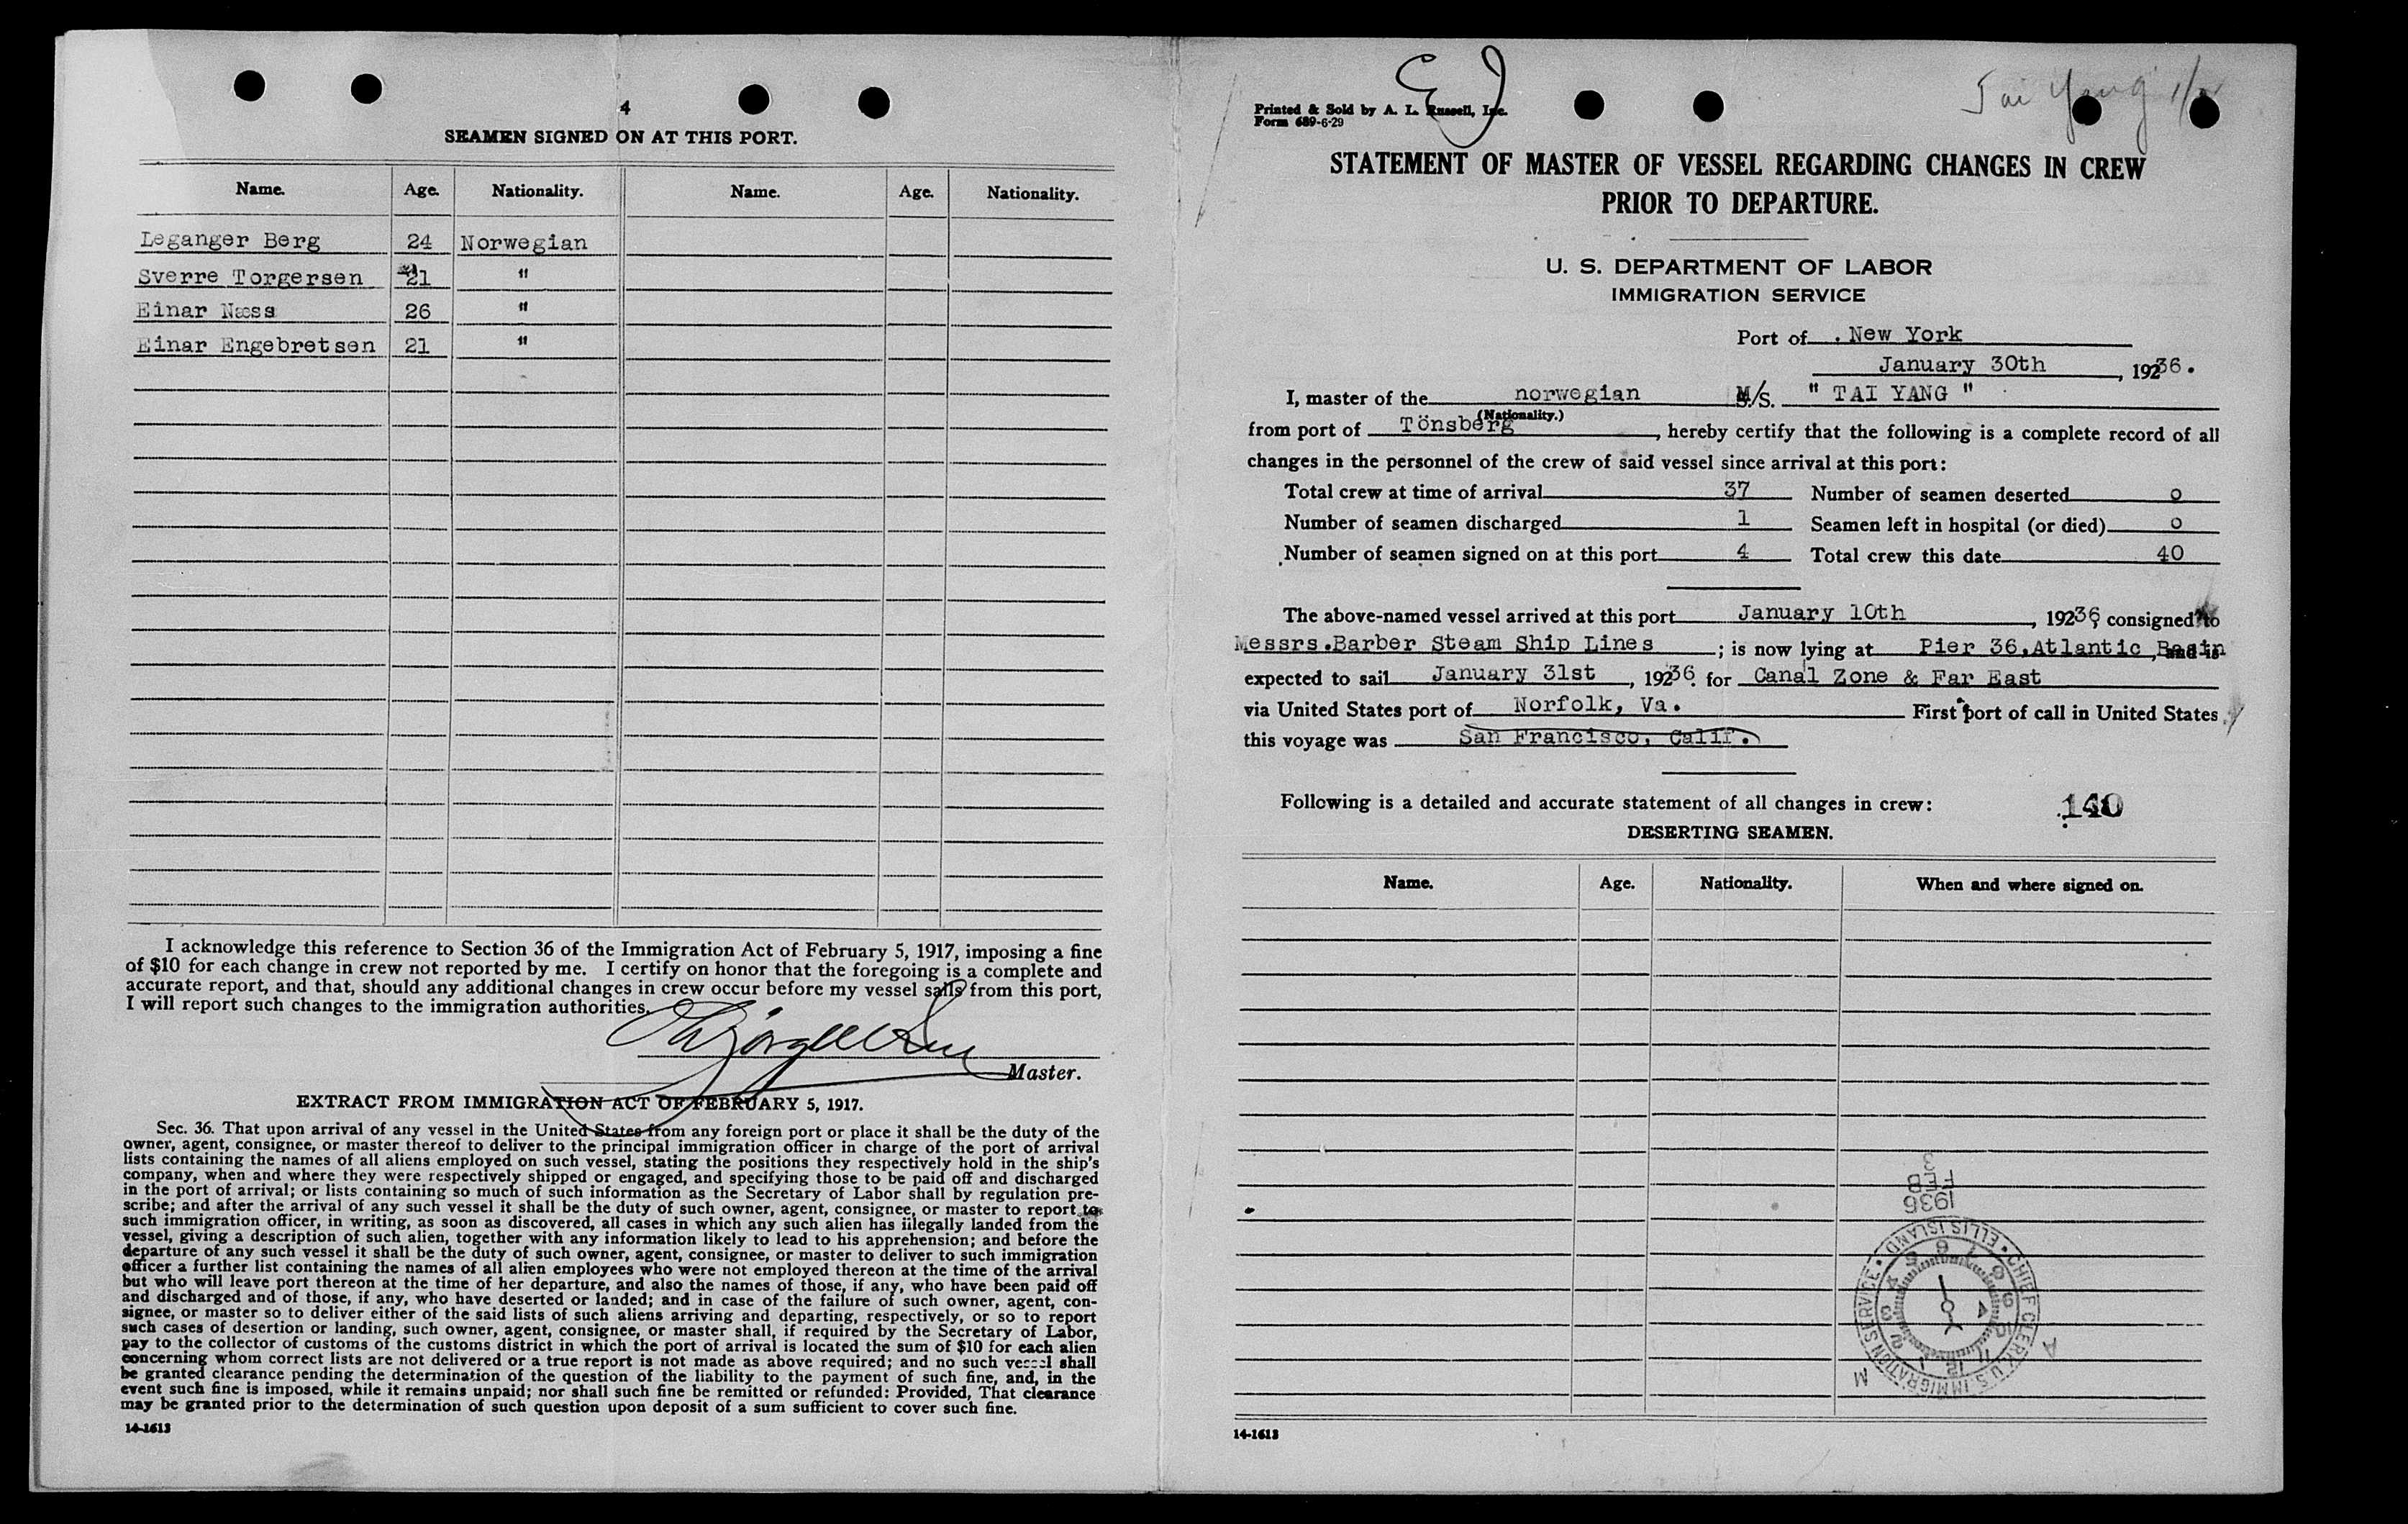 4
SEAMEN SIGNED ON AT THIS PORT.
Name. Age. Nationality. Name. Age. Nationality.
Leganger Berg 24 Norwegian
Sverre Torgersen 21 "
Einar Næss 26 "
Einar Engebretsen 21 "
I acknowledge this reference to Section 36 of the Immigration Act of February 5, 1917, imposing a fine
of $10 for each change in crew not reported by me. I certify on honor that the foregoing is a complete and
accurate report, and that, should any additional changes in crew occur before my vessel sails from this port,
I will report such changes to the immigration authorities.
Master.
EXTRACT FROM IMMIGRATION ACT OF FEBRUARY 5, 1917.
Sec. 36. That upon arrival of any vessel in the United States from any foreign port or place it shall be the duty of the
owner, agent, consignee, or master thereof to deliver to the principal immigration officer in charge of the port of arrival
lists containing the names of all aliens employed on such vessel, stating the positions they respectively hold in the ship's
company, when and where they were respectively shipped or engaged, and specifying those to be paid off and discharged
in the port of arrival; or lists containing so much of such information as the Secretary of Labor shall by regulation pre-
scribe; and after the arrival of any such vessel it shall be the duty of such owner, agent, consignee, or master to report to
such immigration officer, in writing, as soon as discovered, all cases in which any such alien has illegally landed from the
vessel, giving a description of such alien, together with any information likely to lead to his apprehension; and before the
departure of any such vessel it shall be the duty of such owner, agent, consignee, or master to deliver to such immigration
officer a further list containing the names of all alien employees who were not employed thereon at the time of the arrival
but who will leave port thereon at the time of her departure, and also the names of those, if any, who have been paid off
and discharged and of those, if any, who have deserted or landed; and in case of the failure of such owner, agent, con-
signee, or master so to deliver either of the said lists of such aliens arriving and departing, respectively, or so to report
such cases of desertion or landing, such owner, agent, consignee, or master shall, if required by the Secretary of Labor,
pay to the collector of customs of the customs district in which the port of arrival is located the sum of $10 for each alien
concerning whom correct lists are not delivered or a true report is not made as above required; and no such vessel shall
be granted clearance pending the determination of the question of the liability to the payment of such fine, and, in the
event such fine is imposed, while it remains unpaid; nor shall such fine be remitted or refunded: Provided, That clearance
may be granted prior to the determination of such question upon deposit of a sum sufficient to cover such fine.
14-1613
Tai Yang
Printed & Sold by A. L. Russell, Inc.
Form 689-6-29
STATEMENT OF MASTER OF VESSEL REGARDING CHANGES IN CREW
PRIOR TO DEPARTURE.
U. S. DEPARTMENT OF LABOR
IMMIGRATION SERVICE
Port of New York
January 30th, 19236.
I, master of the norwegian M/S. " TAI YANG "
(Nationality.)
from port of Tönsberg, hereby certify that the following is a complete record of all
changes in the personnel of the crew of said vessel since arrival at this port:
Total crew at time of arrival 37 Number of seamen deserted o
Number of seamen discharged 1 Seamen left in hospital (or died) o
Number of seamen signed on at this port 4 Total crew this date 40
The above-named vessel arrived at this port January 10th, 19236, consigned to
Messrs.Barber Steam Ship Lines; is now lying at Pier 36,Atlantic Basin, and is
expected to sail January 31st, 19236. for Canal Zone & Far East
via United States port of Norfolk, Va. First port of call in United States
this voyage was San Francisco, Calif.
Following is a detailed and accurate statement of all changes in crew: 140
DESERTING SEAMEN.
Name. Age. Nationality. When and where signed on.
1936
FEB
3
CHIEF CLERK, U.S. IMMIGRATION SERVICE • ELLIS ISLAND •
1 2 3 4 5 6 7 8 9 10 11 12
A M
14-1613